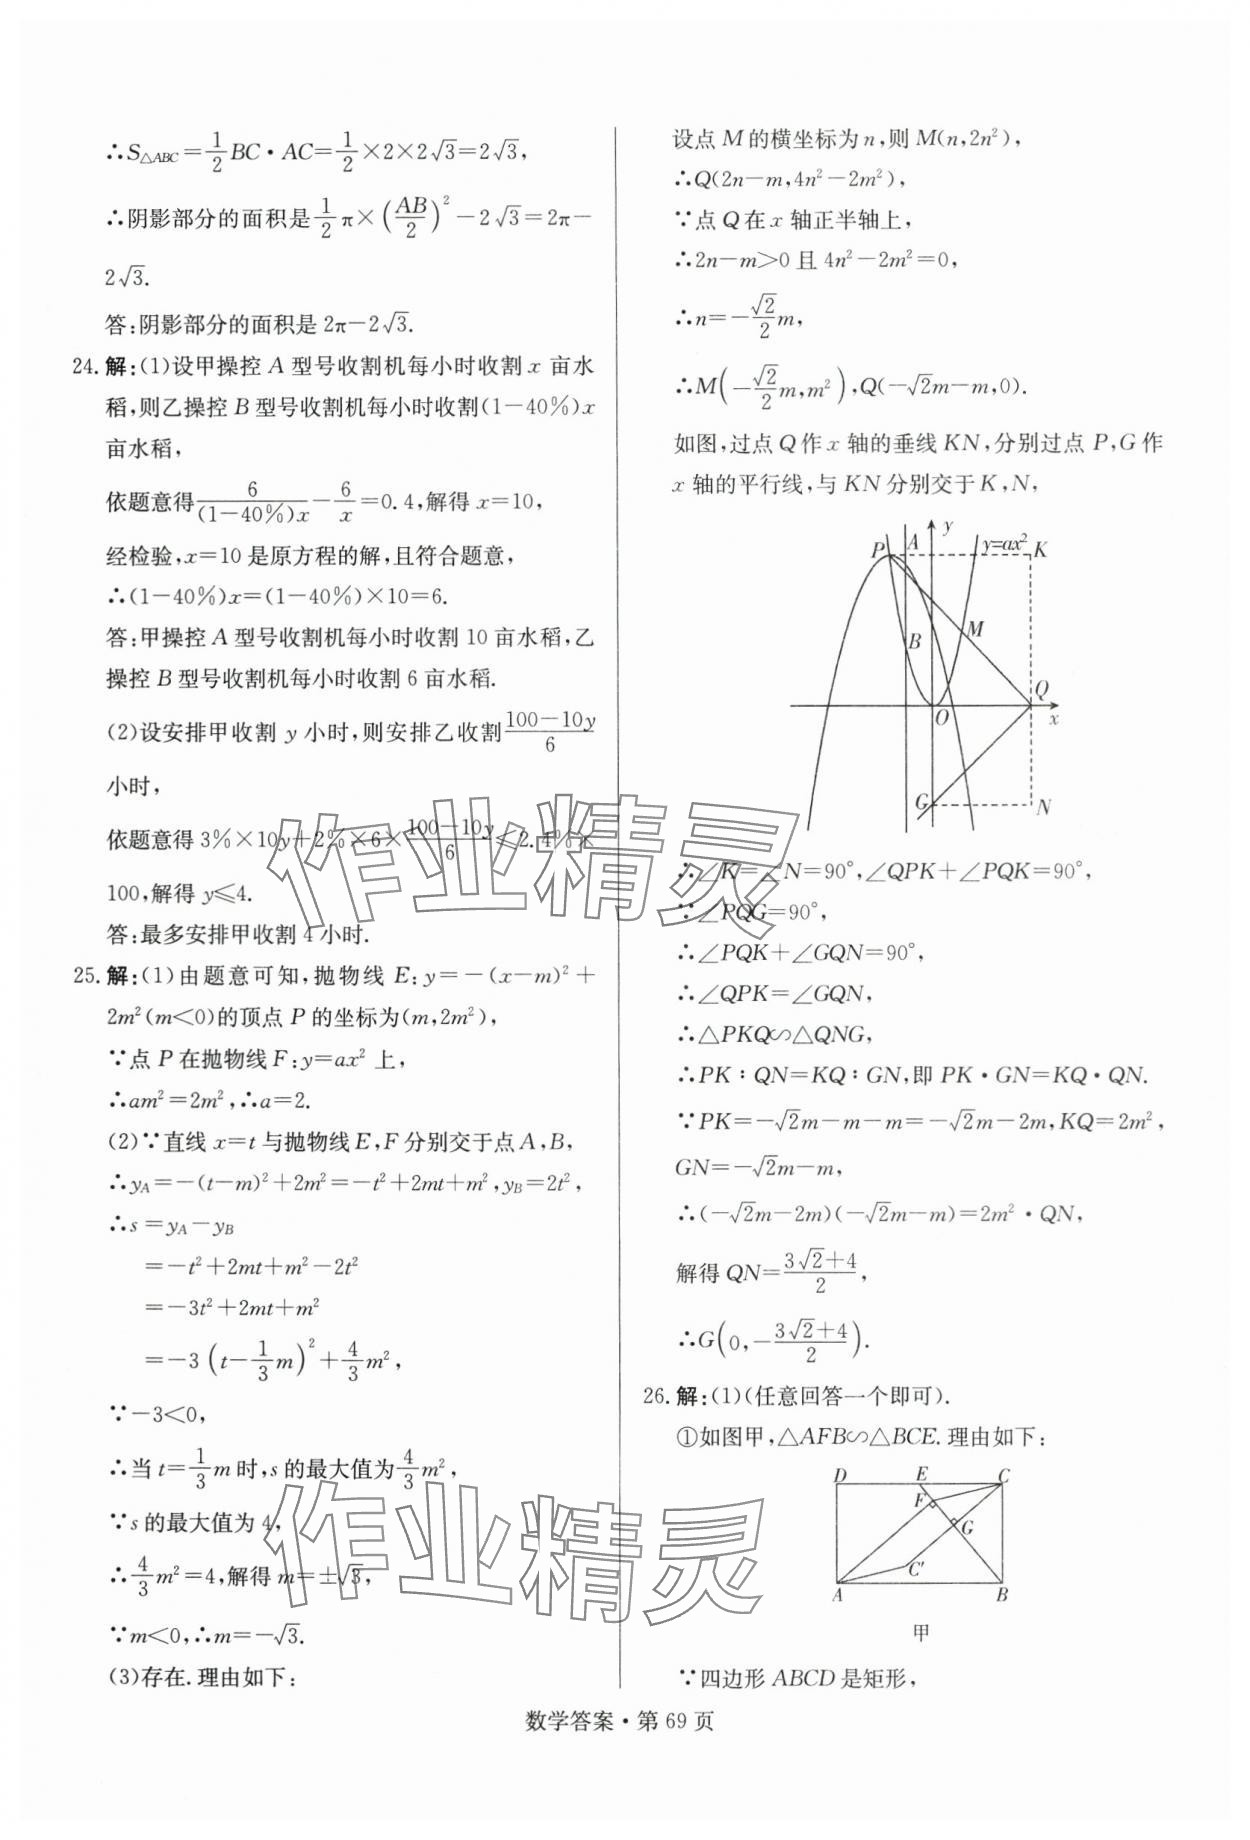 ∴S△ABC=1/2 BC·AC=1/2×2×2√3=2√3,
∴阴影部分的面积是1/2 π×(AB/2)²-2√3=2π-
2√3.
答:阴影部分的面积是 2π-2√3.
24. 解:(1)设甲操控 A 型号收割机每小时收割 x 亩水
稻,则乙操控 B 型号收割机每小时收割(1-40%)x
亩水稻,
依题意得 6/((1-40%)x) - 6/x =0.4,解得 x=10,
经检验,x=10 是原方程的解,且符合题意,
∴(1-40%)x=(1-40%)×10=6.
答:甲操控 A 型号收割机每小时收割 10 亩水稻,乙
操控 B 型号收割机每小时收割 6 亩水稻.
(2)设安排甲收割 y 小时,则安排乙收割 (100-10y)/6
小时,
依题意得 3%×10y+2%×6×(100-10y)/6≤2.4%×
100,解得 y≤4.
答:最多安排甲收割 4 小时.
25. 解:(1)由题意可知,抛物线 E:y=-(x-m)²+
2m²(m<0)的顶点 P 的坐标为(m,2m²),
∵点 P 在抛物线 F:y=ax² 上,
∴am²=2m²,∴a=2.
(2)∵直线 x=t 与抛物线 E,F 分别交于点 A,B,
∴yA=-(t-m)²+2m²=-t²+2mt+m²,yB=2t²,
∴s=yA-yB
=-t²+2mt+m²-2t²
=-3t²+2mt+m²
=-3(t-1/3 m)²+4/3 m²,
∵-3<0,
∴当 t=1/3 m 时,s 的最大值为 4/3 m²,
∵s 的最大值为 4,
∴4/3 m²=4,解得 m=±√3,
∵m<0,∴m=-√3.
(3)存在.理由如下:
设点 M 的横坐标为 n,则 M(n,2n²),
∴Q(2n-m,4n²-2m²),
∵点 Q 在 x 轴正半轴上,
∴2n-m>0 且 4n²-2m²=0,
∴n=-√2/2 m,
∴M(-√2/2 m,m²),Q(-√2m-m,0).
如图,过点 Q 作 x 轴的垂线 KN,分别过点 P,G 作
x 轴的平行线,与 KN 分别交于 K,N,
P A y y=ax² K
B M
O Q x
G N
∴∠K=∠N=90°,∠QPK+∠PQK=90°,
∵∠PQG=90°,
∴∠PQK+∠GQN=90°,
∴∠QPK=∠GQN,
∴△PKQ∽△QNG,
∴PK∶QN=KQ∶GN,即 PK·GN=KQ·QN.
∵PK=-√2m-m-m=-√2m-2m,KQ=2m²,
GN=-√2m-m,
∴(-√2m-2m)(-√2m-m)=2m²·QN,
解得 QN=(3√2+4)/2,
∴G(0,-(3√2+4)/2).
26. 解:(1)(任意回答一个即可).
①如图甲,△AFB∽△BCE.理由如下:
D E C
F
G
C′
A B
甲
∵四边形 ABCD 是矩形,
数学答案·第 69 页
作业精灵
作业精灵